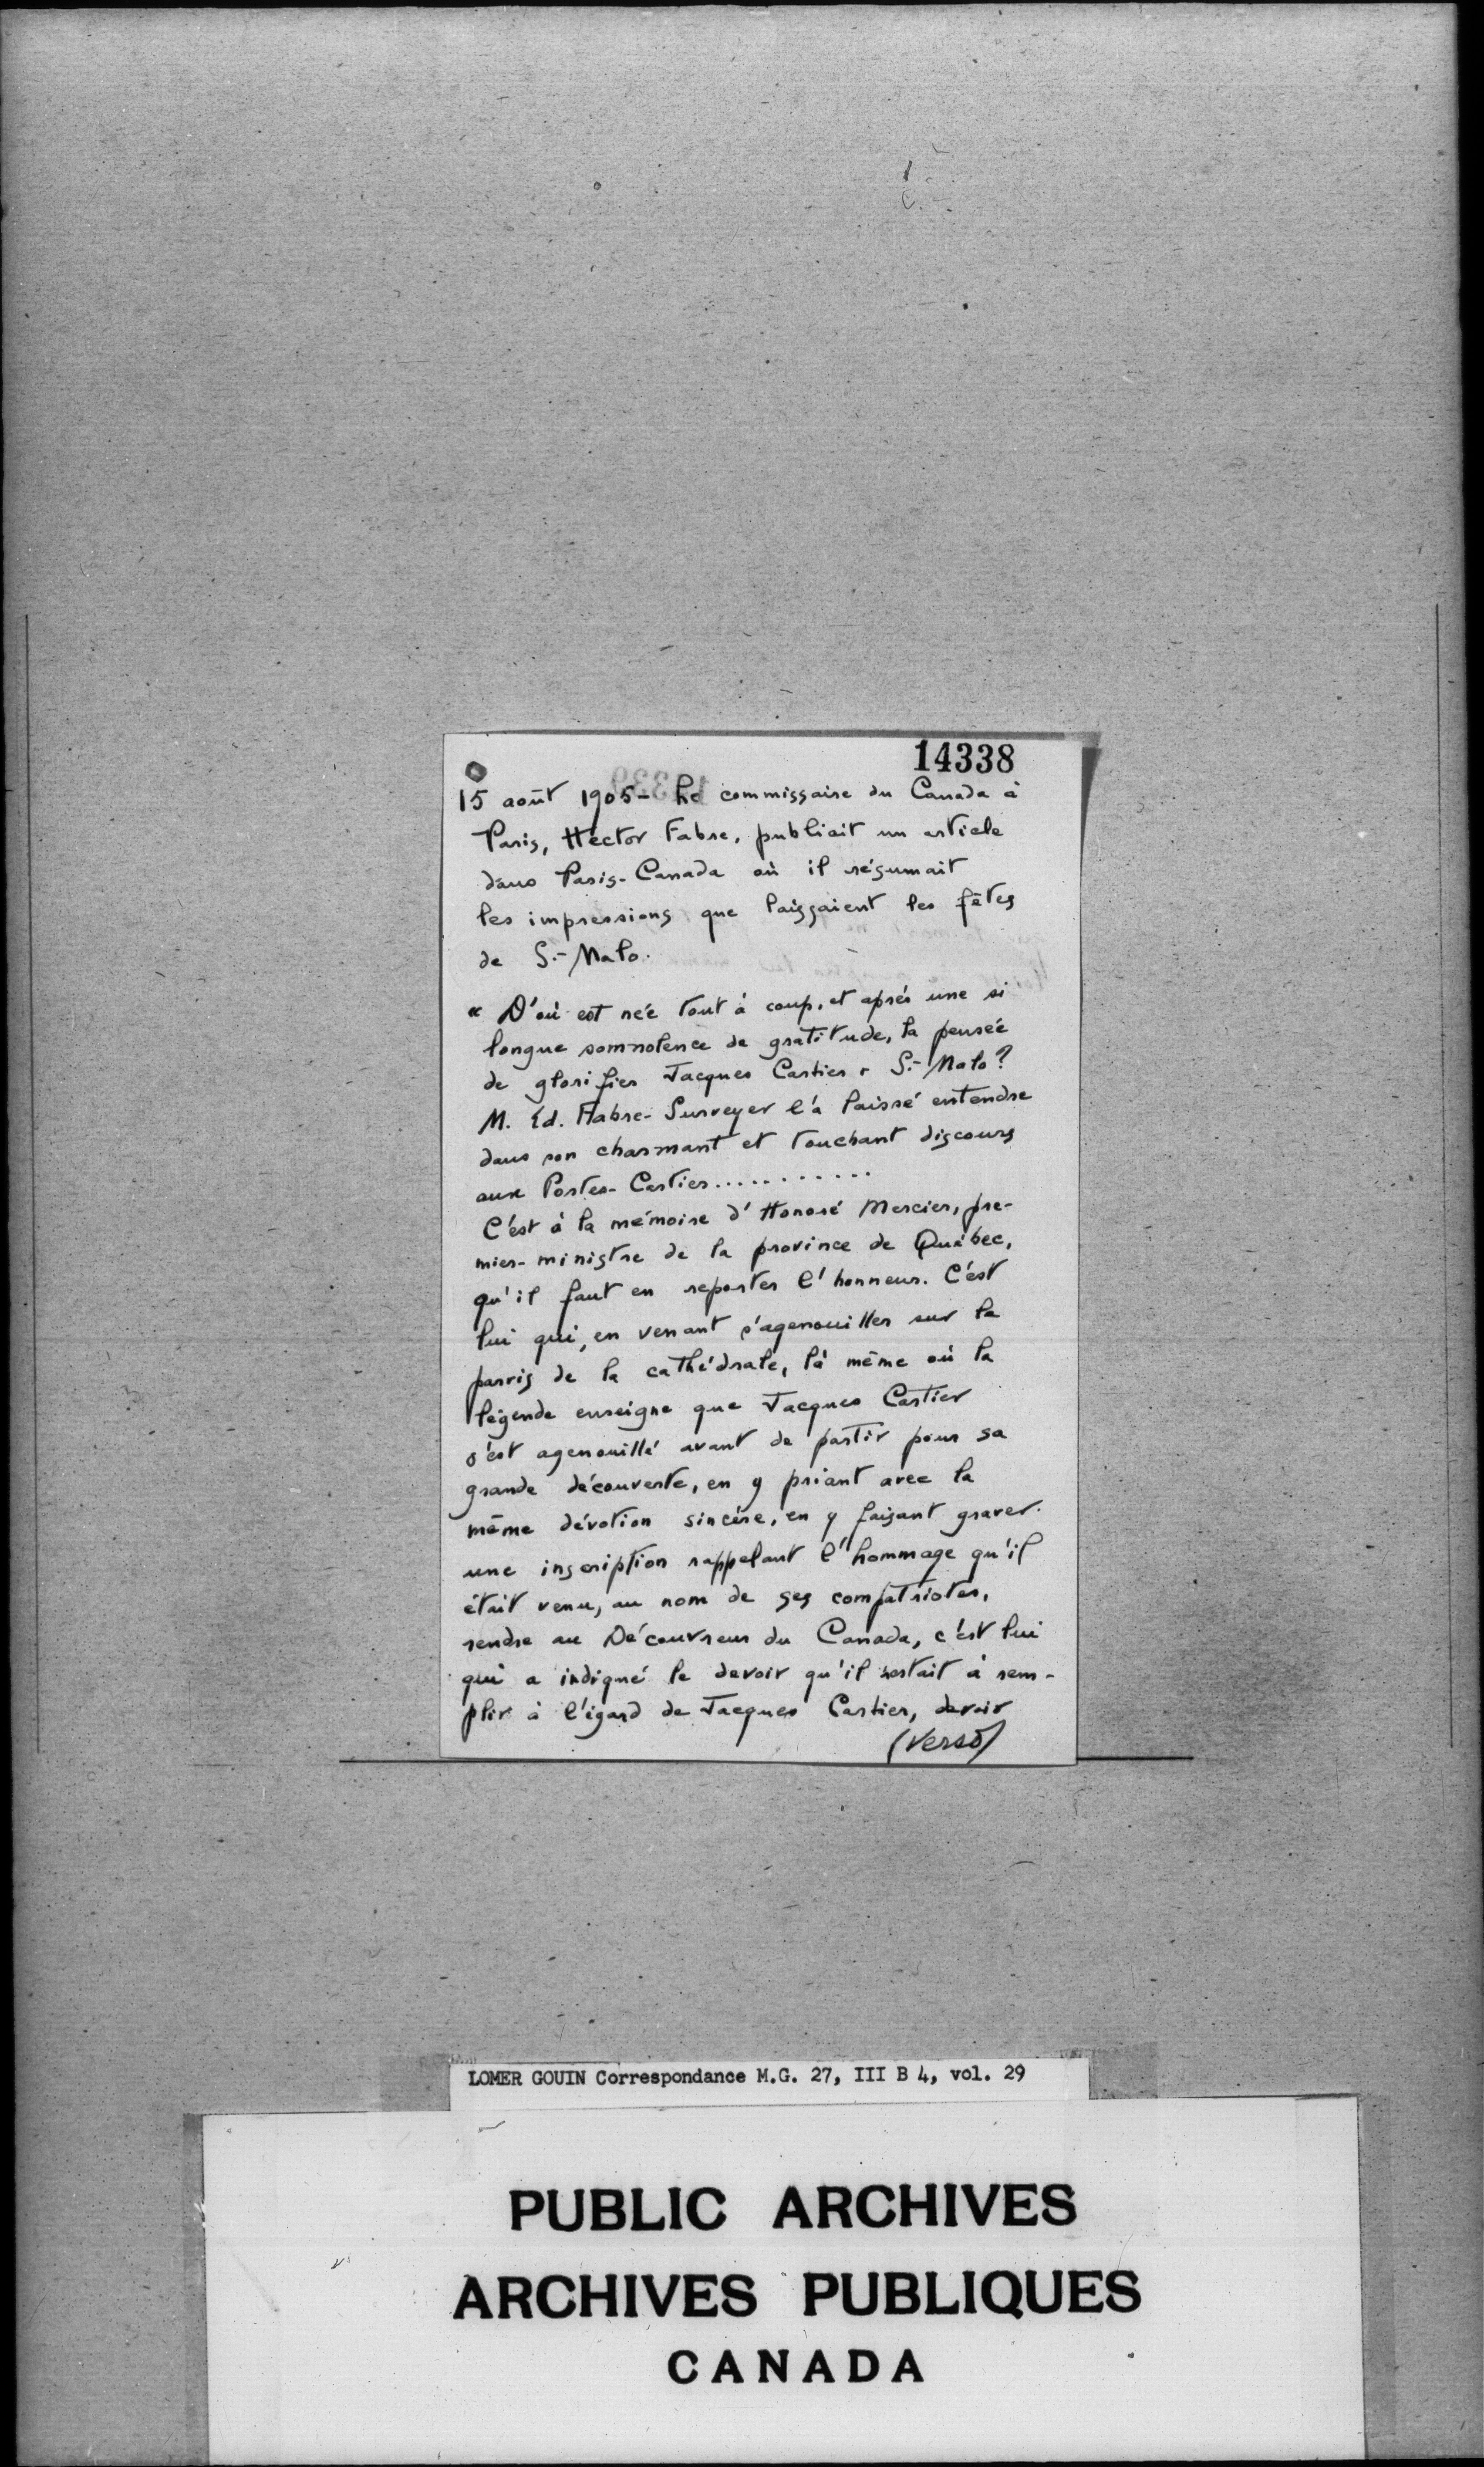 14338
15 août 1905 - Le commissaire du Canada à
Paris, Hector Fabre, publiait un article
dans Paris-Canada où il résumait
les impressions que laissaient les fêtes
de S.-Malo.
« D'où est née tout à coup, et après une si
longue somnolence de gratitude, la pensée
de glorifier Jacques Cartier à S.-Malo?
M. Ed. Fabre-Surveyer l'a laissé entendre
dans son charmant et touchant discours
aux Portes-Cartier............
C'est à la mémoire d'Honoré Mercier, pre-
mier-ministre de la province de Québec,
qu'il faut en reporter l'honneur. C'est
lui qui, en venant s'agenouiller sur le
parvis de la cathédrale, là même où la
légende enseigne que Jacques Cartier
s'est agenouillé avant de partir pour sa
grande découverte, en y priant avec la
même dévotion sincère, en y faisant graver
une inscription rappelant l'hommage qu'il
était venu, au nom de ses compatriotes,
rendre au Découvreur du Canada, c'est lui
qui a indiqué le devoir qu'il restait à rem-
plir à l'égard de Jacques Cartier, devoir
(verso)
LOMER GOUIN Correspondance M.G. 27, III B 4, vol. 29
PUBLIC ARCHIVES
ARCHIVES PUBLIQUES
CANADA